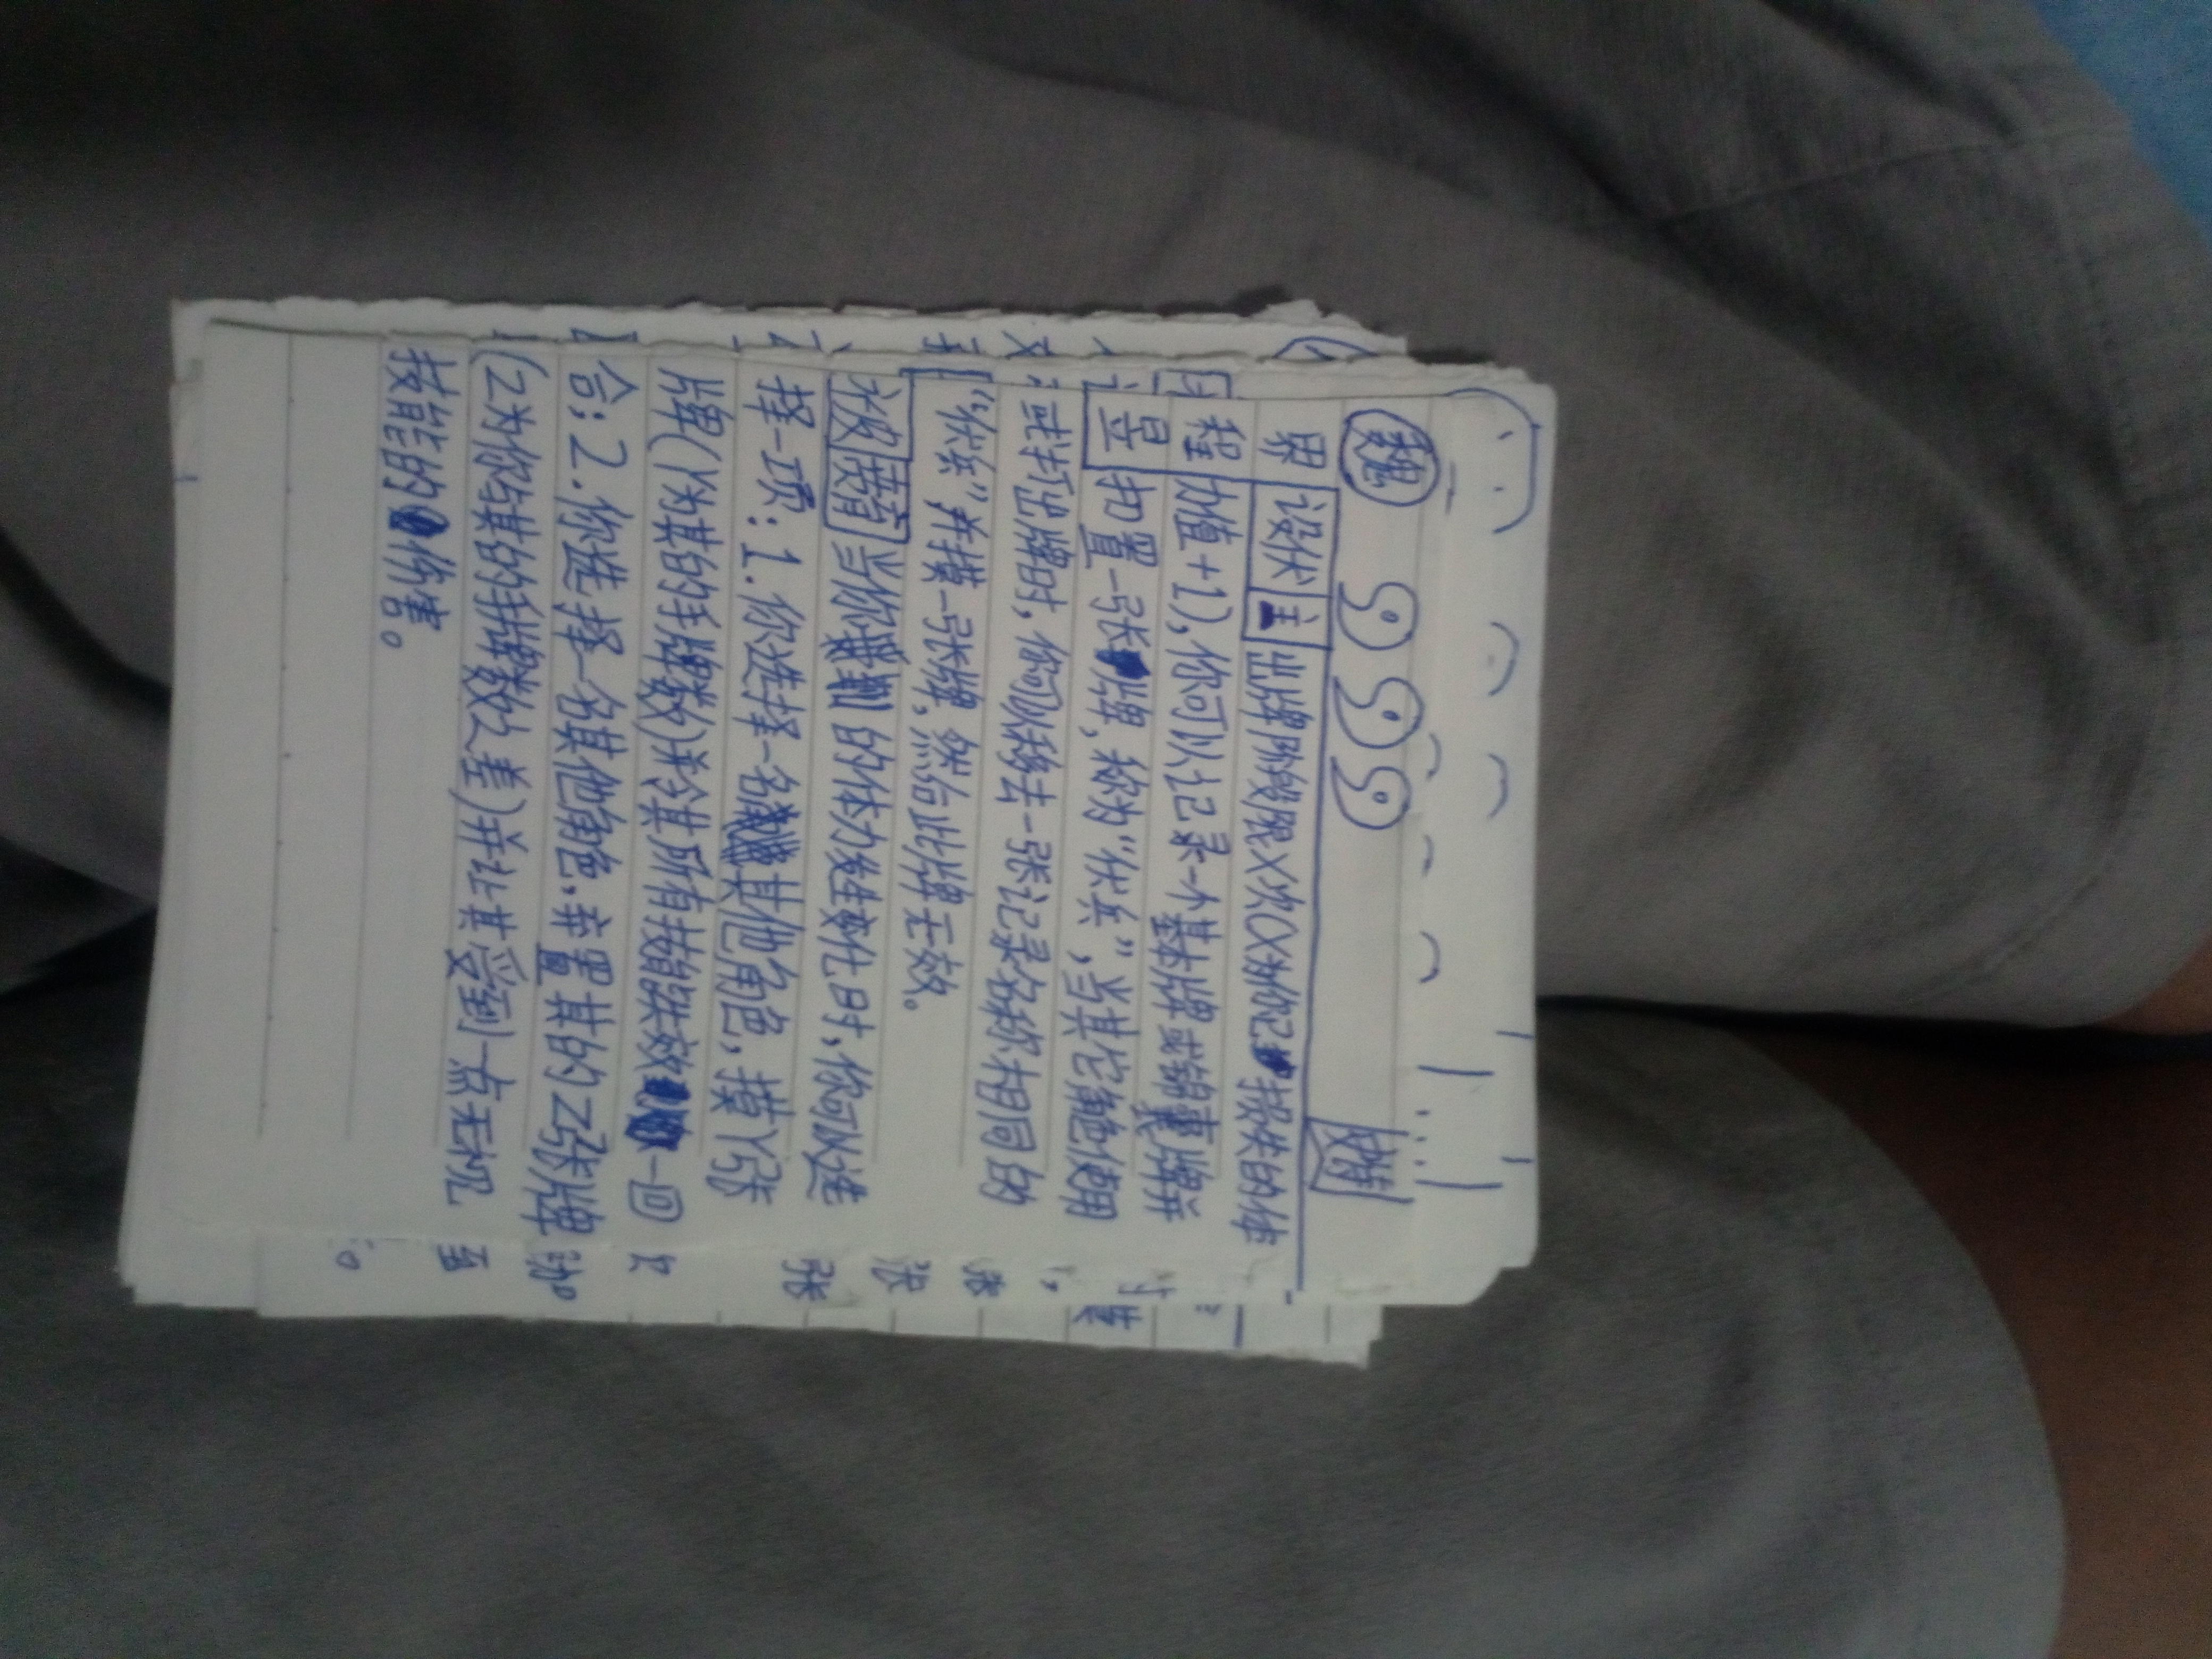 魏 爆
界 设伏 主 出牌阶段限X次(X为你已损失的体
程 力值+1),你可以记录一个基本牌或锦囊牌并
昱 扣置一张牌,称为“伏兵”,当其它角色使用
或打出牌时,你可以移去一张记录名称相同的
“伏兵”并摸一张牌,然后此牌无效。
当你的体力发生变化时,你可以选
择一项:1.你选择一名其他角色,摸Y张
牌(Y为其的手牌数)并令其所有技能失效一回
合;2.你选择一名其他角色,弃置其的Z张牌
(Z为你与其的手牌数之差)并让其受到一点无视
技能的伤害。